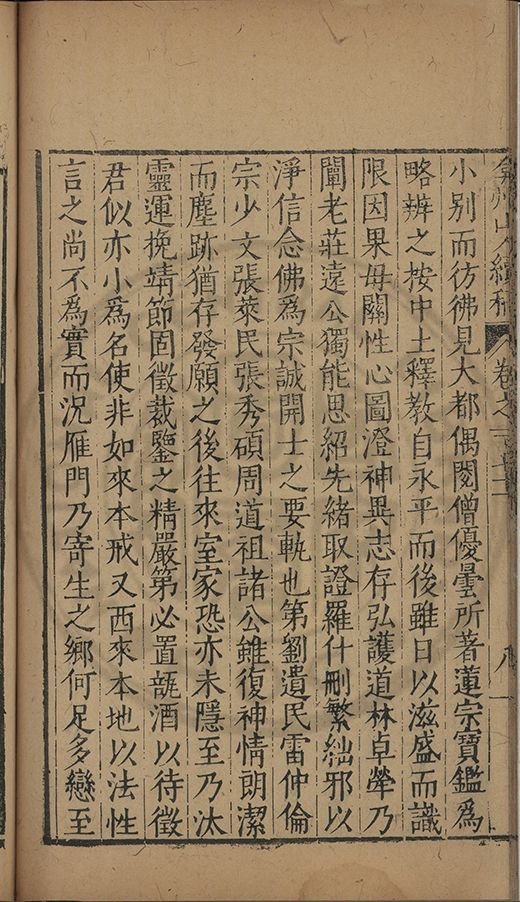 弇州山人續稿 卷之一百七十二 八
小別而彷彿見大都偶閱僧優曇所著蓮宗寶鑑爲
略辨之按中土釋教自永平而後雖日以滋盛而識
限因果毋關性心圖澄神異志存弘護道林卓犖乃
闡老莊遠公獨能思紹先緒取證羅什刪繁絀邪以
淨信念佛爲宗誠開士之要軌也第劉遺民雷仲倫
宗少文張萊民張秀碩周道祖諸公雖復神情朗潔
而塵跡猶存發願之後往來室家恐亦未隱至乃汰
靈運挽靖節固徵裁鑒之精嚴第必置瓻酒以待徵
君似亦小爲名使非如來本戒又西來本地以法性
言之尚不爲實而況雁門乃寄生之鄉何足多戀至